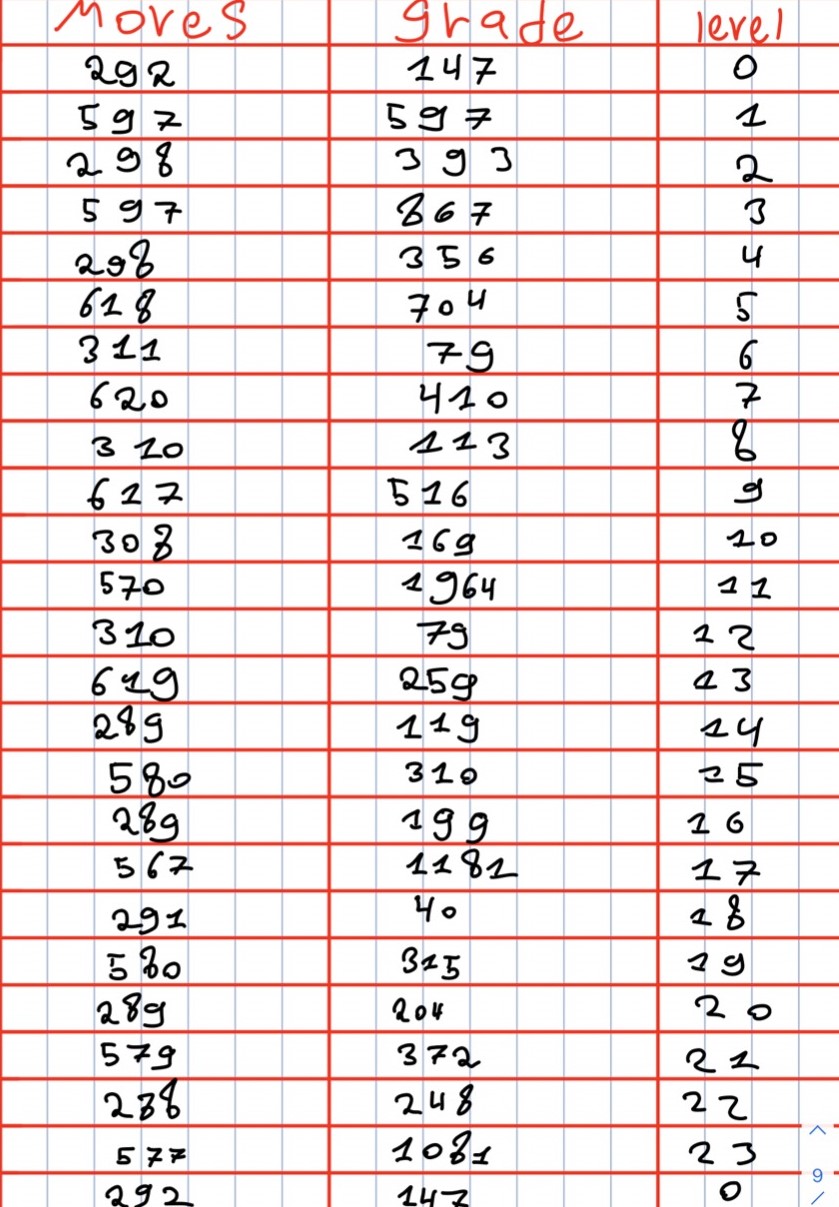 Moves grade level
292 147 0
597 597 1
298 393 2
597 867 3
298 356 4
618 704 5
311 79 6
620 410 7
310 113 8
617 516 9
308 169 10
570 1964 11
310 79 12
619 259 13
289 119 14
580 310 15
289 199 16
567 1181 17
291 40 18
580 315 19
289 204 20
579 372 21
288 248 22
577 1081 23
9
292 147 0